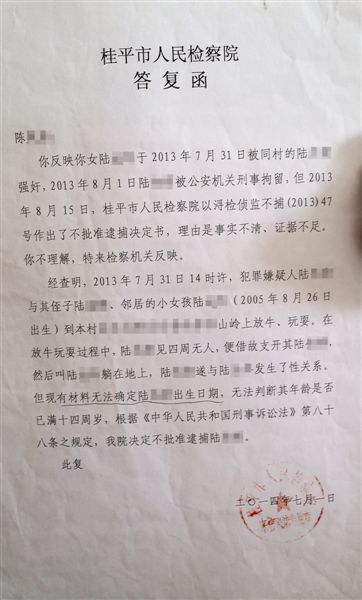 桂平市人民检察院
答 复 函
陈
你反映你女陆 于 2013 年 7 月 31 日被同村的陆
强奸，2013 年 8 月 1 日陆 被公安机关刑事拘留，但 2013
年 8 月 15 日，桂平市人民检察院以浔检侦监不捕(2013)47
号作出了不批准逮捕决定书，理由是事实不清，证据不足。
你不理解，特来检察机关反映。
经查明，2013 年 7 月 31 日 14 时许，犯罪嫌疑人陆
与其侄子陆 、邻居的小女孩陆 （2005 年 8 月 26 日
出生）到本村 山岭上放牛、玩耍。在
放牛玩耍过程中，陆 见四周无人，便借故支开其陆 ，
然后叫陆 躺在地上，陆 遂与陆 发生了性关系。
但现有材料无法确定陆 出生日期，无法判断其年龄是否
已满十四周岁，根据《中华人民共和国刑事诉讼法》第八十
八条之规定，我院决定不批准逮捕陆 。
此复
二〇一四年七月一日